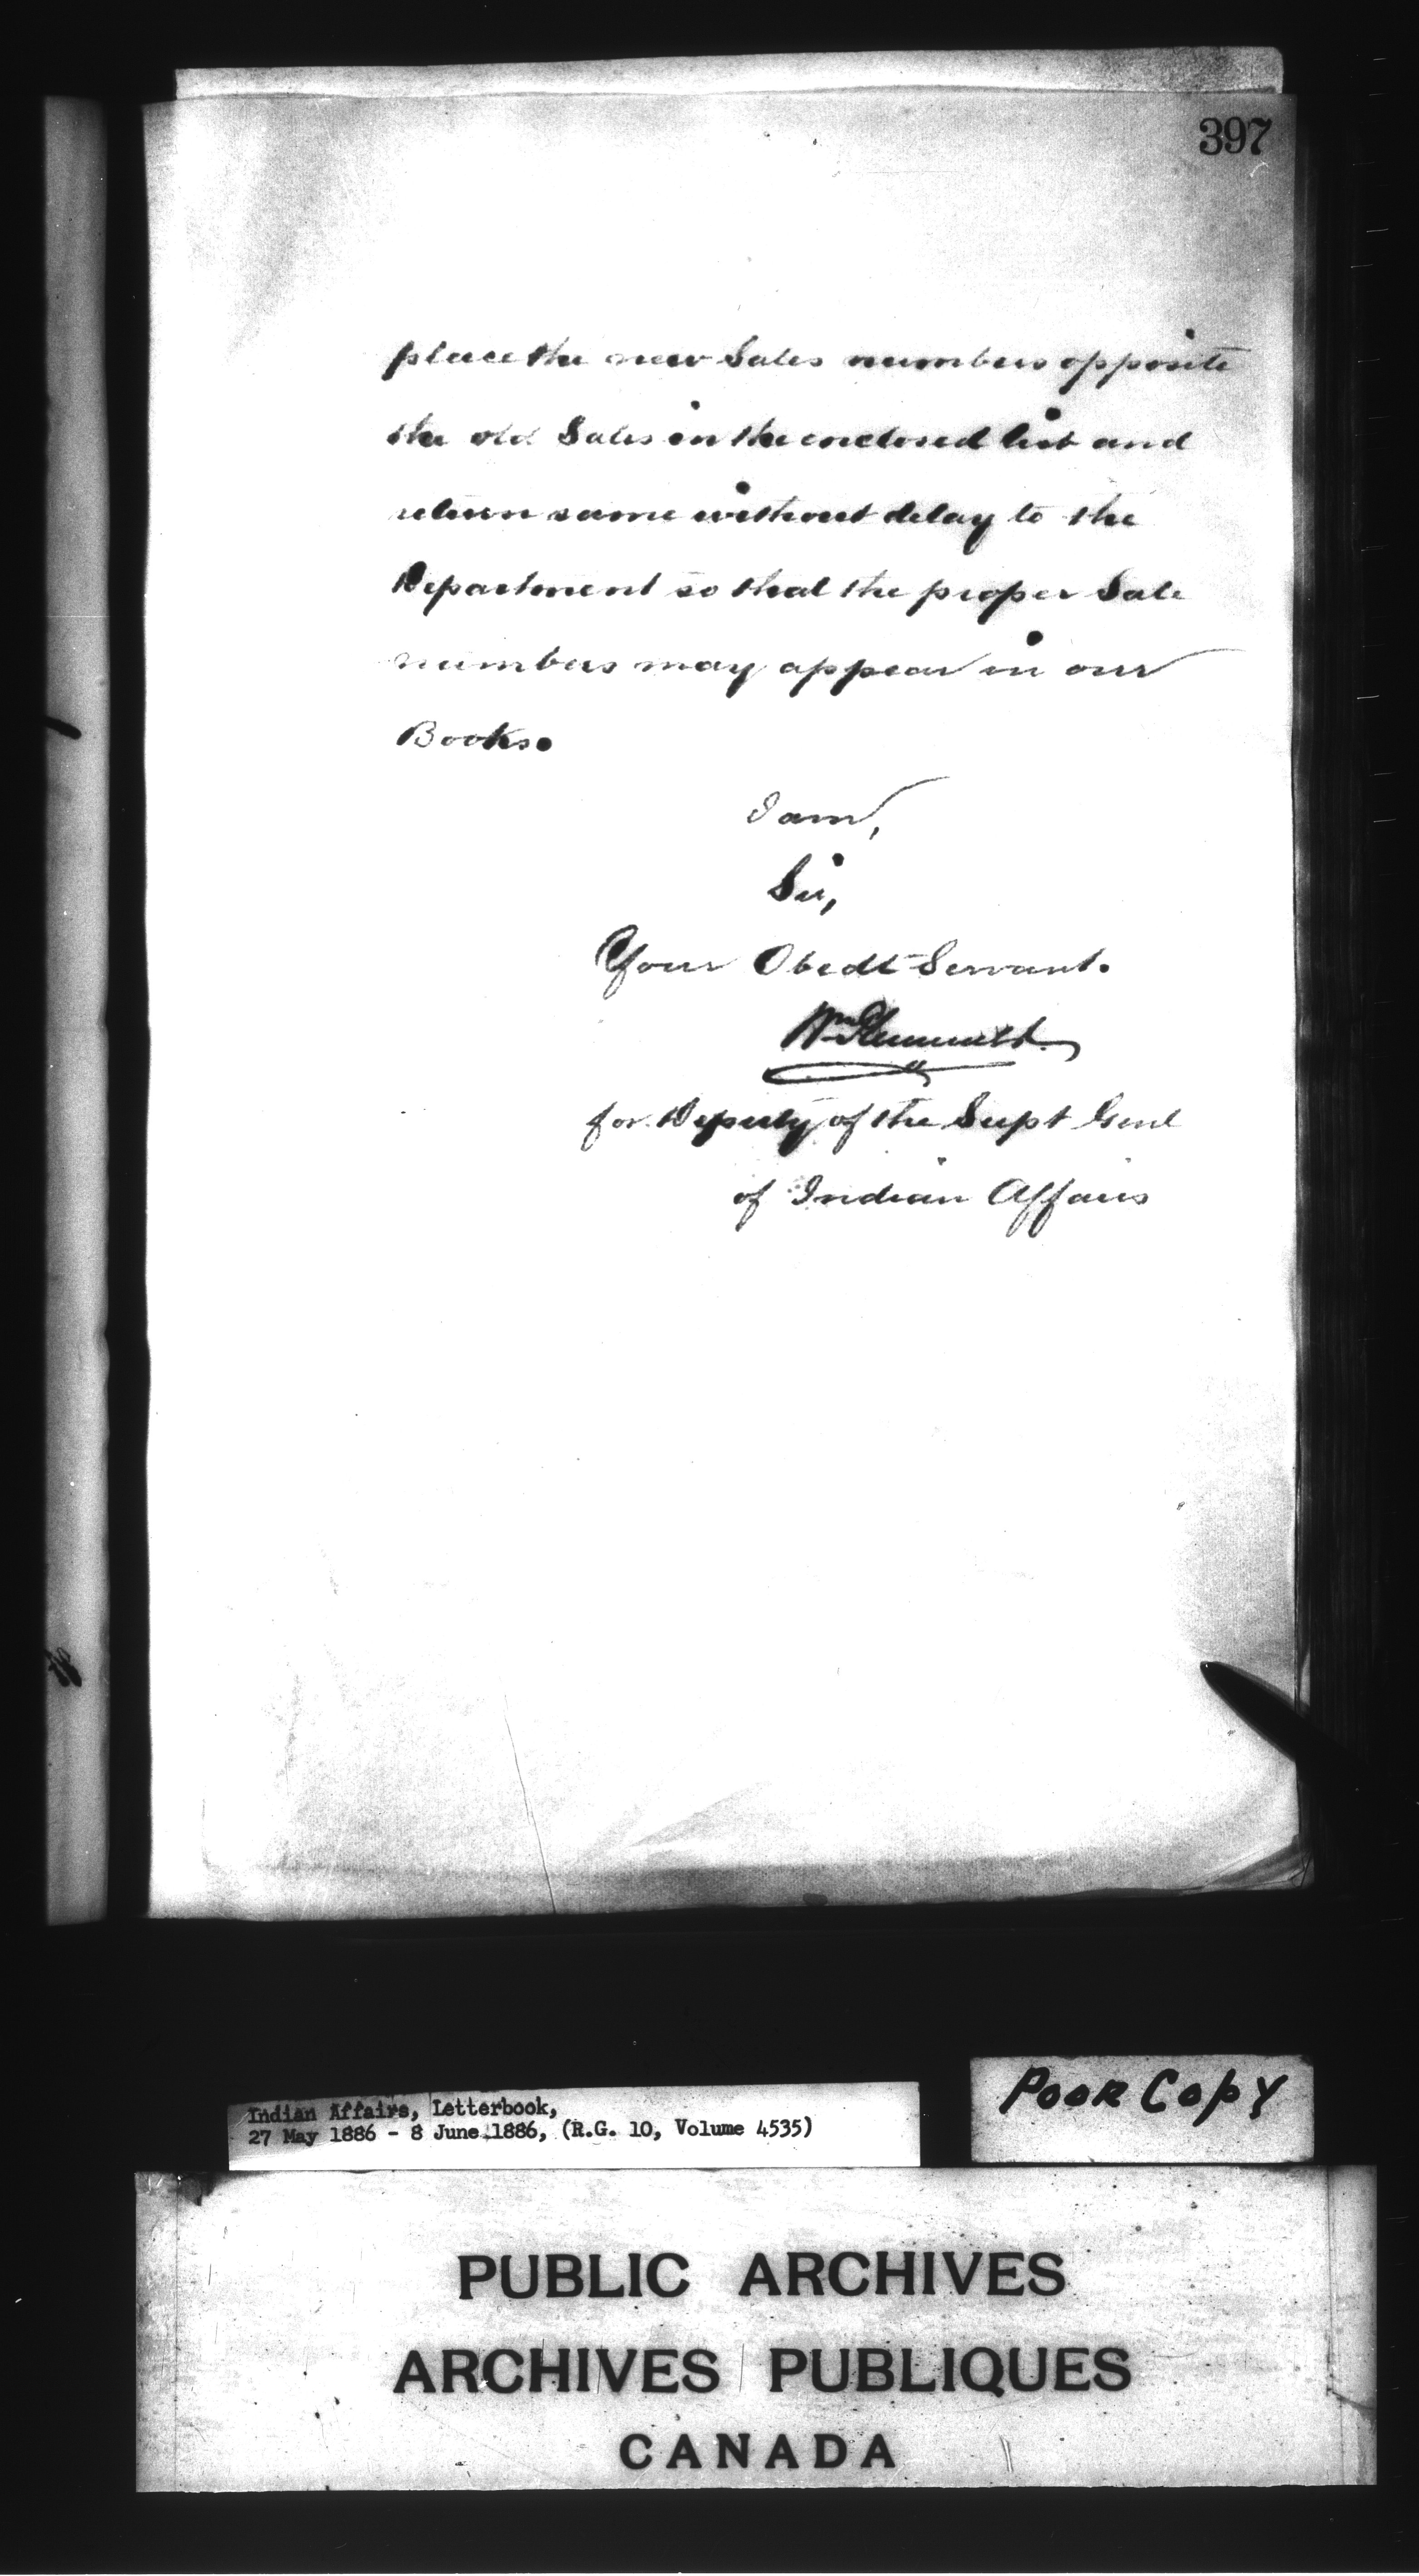 397
place the new Sales numbers opposite
the old Sales in the enclosed list and
return same without delay to the
Department so that the proper Sale
numbers may appear in our
Books.
I am,
Sir,
Your Obedt Servant.
Wm Plummer
for Deputy of the Supt Genl
of Indian Affairs
Poor Copy
Indian Affairs, Letterbook,
27 May 1886 - 8 June 1886, (R.G. 10, Volume 4535)
PUBLIC ARCHIVES
ARCHIVES PUBLIQUES
CANADA